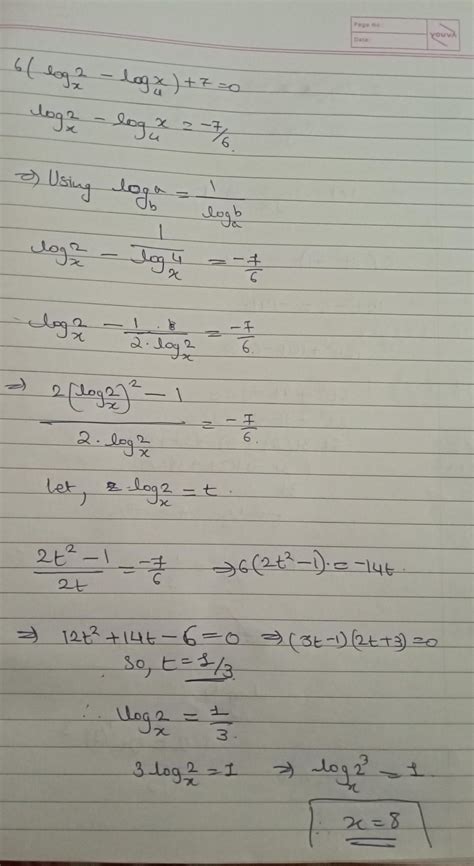 Page No.:
Date:
youva
6(log_x 2 - log_4 x) + 7 = 0
log_x 2 - log_4 x = -7/6.
⇒ Using log_b a = 1/log_a b
log_x 2 - 1/log_x 4 = -7/6
log_x 2 - 1/(2·log_x 2) = -7/6.
⇒ (2(log_x 2)² - 1)/(2·log_x 2) = -7/6.
let, log_x 2 = t.
(2t² - 1)/2t = -7/6 ⇒ 6(2t² - 1) = -14t.
⇒ 12t² + 14t - 6 = 0 ⇒ (3t-1)(2t+3) = 0
so, t = 1/3.
∴ log_x 2 = 1/3.
3 log_x 2 = 1 ⇒ log_x 2³ = 1.
∴ x = 8